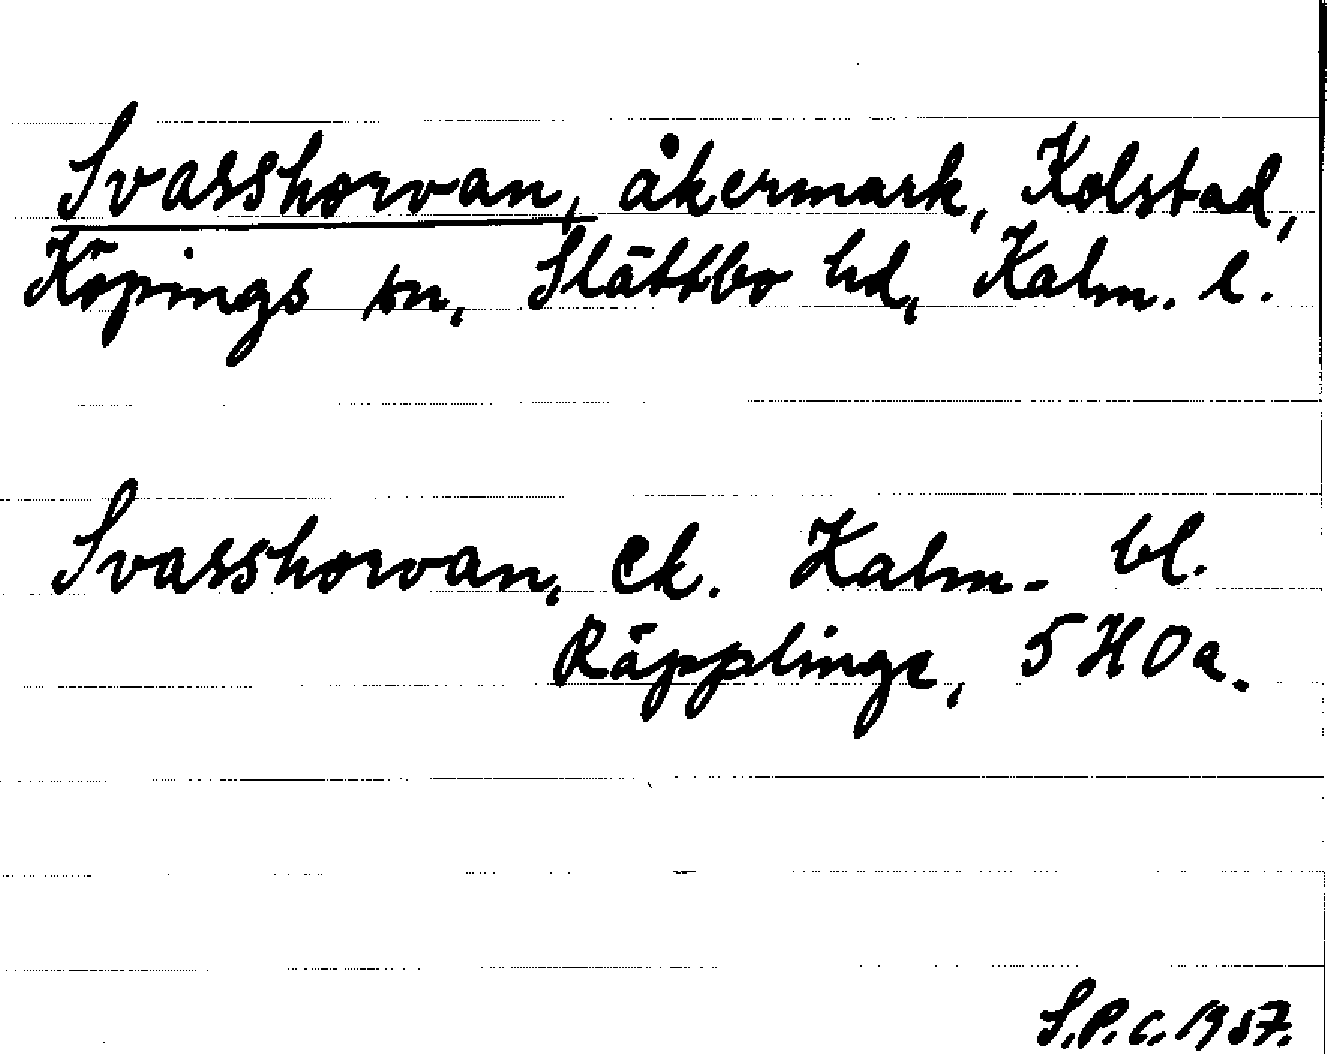 Svasshorvan, åkermark, Kolstad,
Köpings sn, Slättbo hd, Kalm. l.
Svasshorvan, Ek. Kalm. bl.
Räpplinge, 5 H 0 a.
S.P.C. 1957.